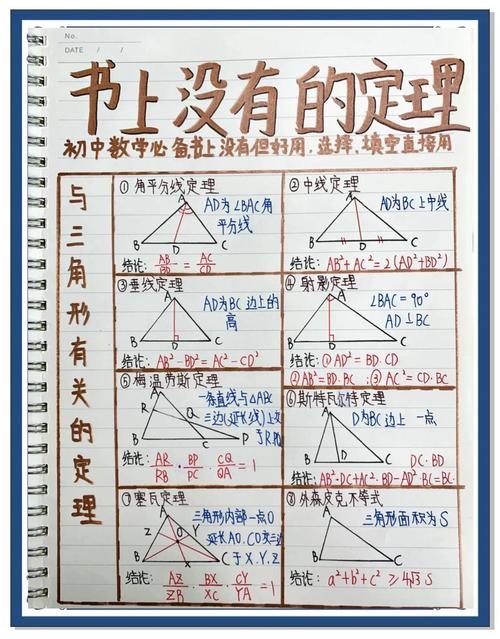 No.
DATE / /
书上没有的定理
初中数学必备,书上没有但好用,选择,填空直接用
与三角形有关的定理
① 角平分线定理
AD为∠BAC角
平分线
A
B D C
结论: AB/BD = AC/CD
② 中线定理
AD为BC上中线
A
B D C
结论: AB²+AC²=2(AD²+BD²)
③垂线定理
AD为BC 边上的
高
A
B D C
结论: AB²-BD²=AC²-CD²
④ 射影定理
∠BAC=90°
AD⊥BC
A
B D C
结论:①AD²=BD·CD
②AB²=BD·BC ;③AC²=CD·BC
⑤ 梅涅劳斯定理
一条直线与△ABC
三边(延长线)上交
于R
A
R Q
B C P
结论: AR/RB · BP/PC · CQ/QA =1
⑥ 斯特瓦尔特定理
D为BC边上 一点
A
B D C
DC·BD
结论:AB²·DC+AC²·BD-AD²·BC=BC·
⑦ 塞瓦定理
三角形内部一点O
延长AO.CO交三边
于X.Y.Z
A
Z O Y
B X C
结论: AZ/ZB · BX/XC · CY/YA =1
⑧ 外森皮克不等式
三角形面积为S
A
B C
结论: a²+b²+c² ≥ 4√3 S